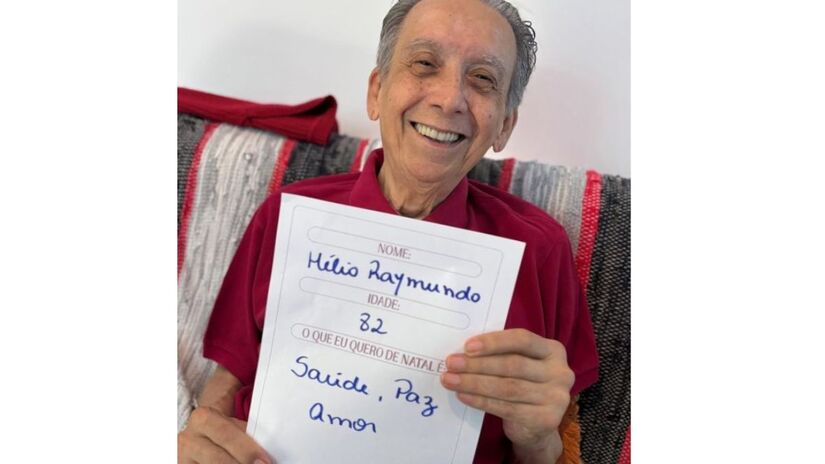 NOME:
Hélio Raymundo
IDADE:
82
O QUE EU QUERO DE NATAL É:
Saúde, Paz
Amor